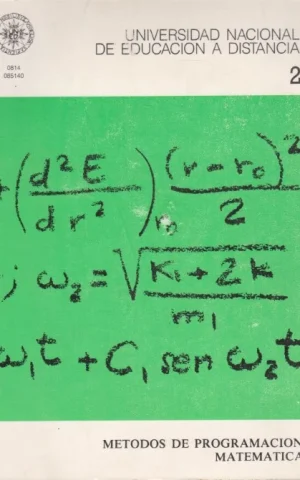 UNIVERSIDAD NACIONAL
DE EDUCACION A DISTANCIA
0814
085140
2
+(d²E/dr²)r₀ (r-r₀)²/2
; ω₂=√(K₁+2k/m₁)
ω₁t + C₁ sen ω₂t
METODOS DE PROGRAMACION
MATEMATICA